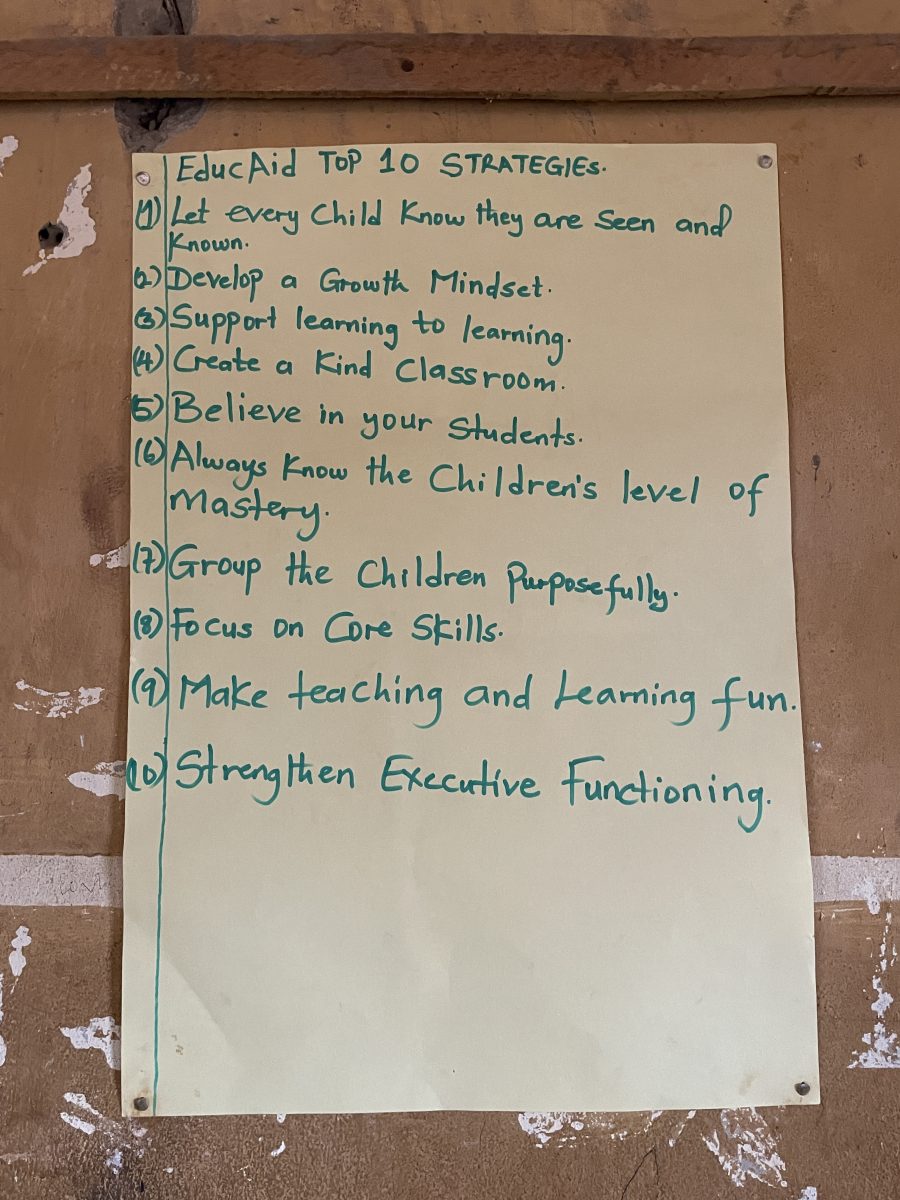 EducAid TOP 10 STRATEGIES.
(1) Let every Child Know they are Seen and
Known.
(2) Develop a Growth Mindset.
(3) Support learning to learning.
(4) Create a Kind Classroom.
(5) Believe in your Students.
(6) Always Know the Children's level of
Mastery.
(7) Group the Children Purposefully.
(8) Focus on Core Skills.
(9) Make teaching and Learning fun.
(10) Strengthen Executive Functioning.